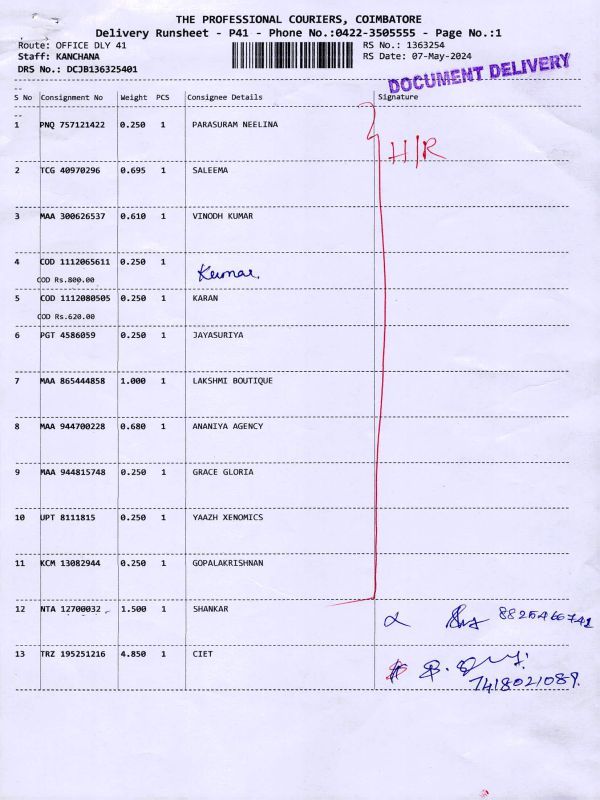 THE PROFESSIONAL COURIERS, COIMBATORE
Delivery Runsheet - P41 - Phone No.:0422-3505555 - Page No.:1
Route: OFFICE DLY 41 RS No.: 1363254
Staff: KANCHANA RS Date: 07-May-2024
DRS No.: DCJB136325401
DOCUMENT DELIVERY
S No Consignment No Weight PCS Consignee Details Signature
1 PNQ 757121422 0.250 1 PARASURAM NEELINA
H/R
2 TCG 40970296 0.695 1 SALEEMA
3 MAA 300626537 0.610 1 VINODH KUMAR
4 COD 1112065611 0.250 1 Kumar.
COD Rs.800.00
5 COD 1112080505 0.250 1 KARAN
COD Rs.620.00
6 PGT 4586059 0.250 1 JAYASURIYA
7 MAA 865444858 1.000 1 LAKSHMI BOUTIQUE
8 MAA 944700228 0.680 1 ANANIYA AGENCY
9 MAA 944815748 0.250 1 GRACE GLORIA
10 UPT 8111815 0.250 1 YAAZH XENOMICS
11 KCM 13082944 0.250 1 GOPALAKRISHNAN
12 NTA 12700032 1.500 1 SHANKAR 8825466742
13 TRZ 195251216 4.850 1 CIET
7418021089.